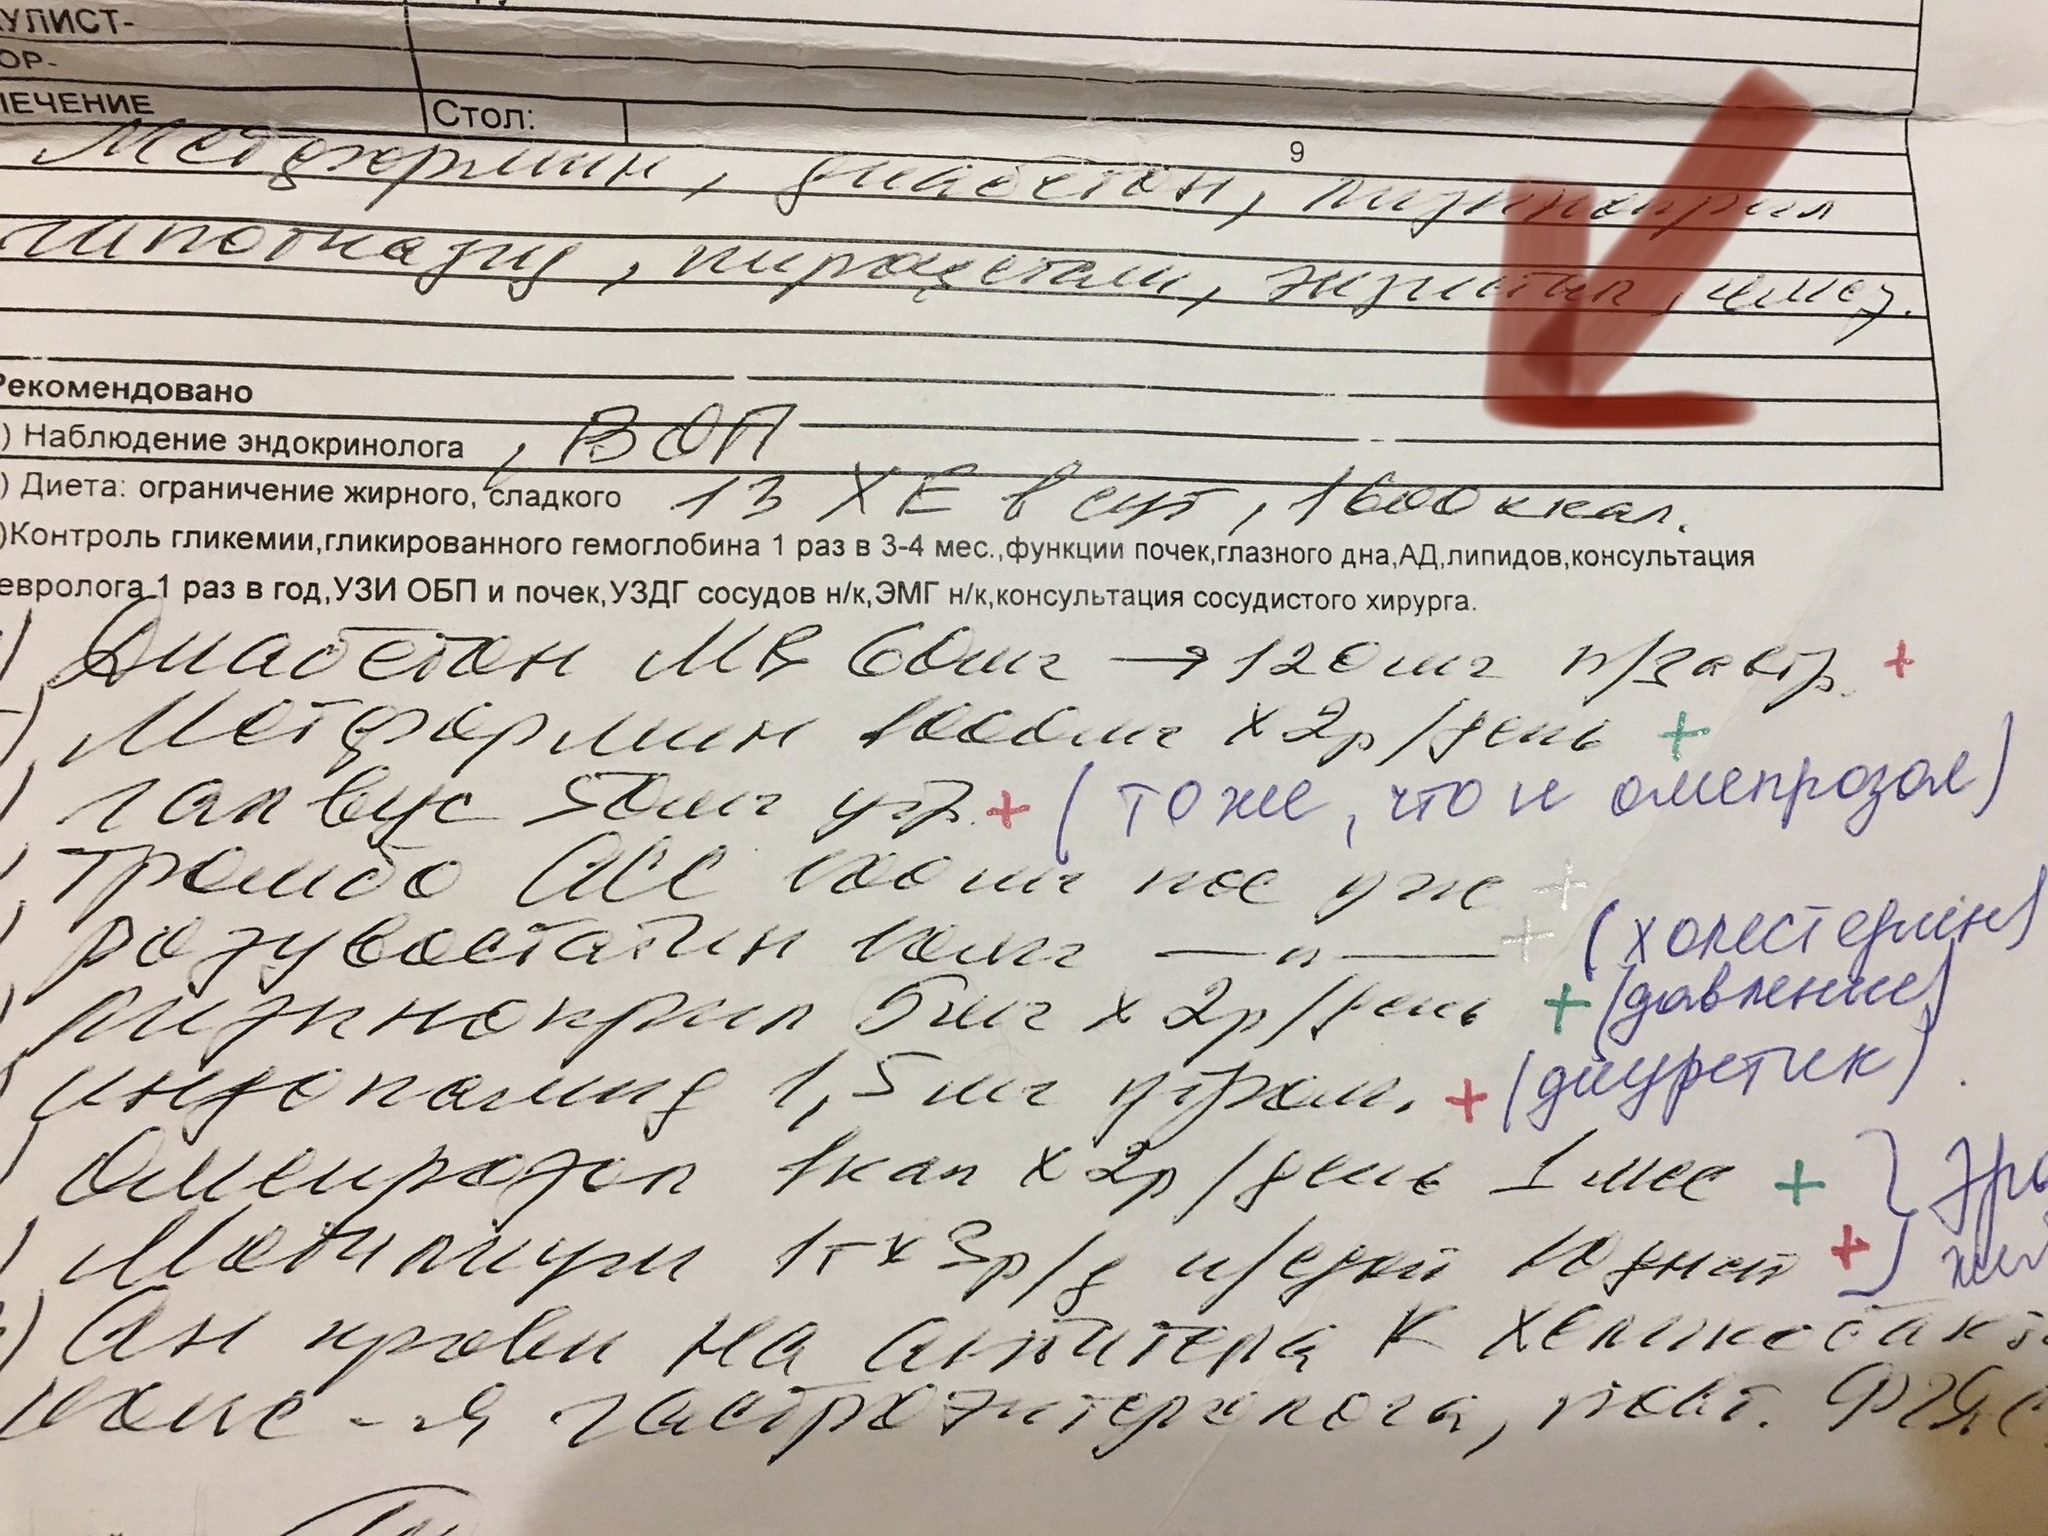 КУЛИСТ-
ОР-
ЛЕЧЕНИЕ Стол: 9
Метформин, диабетон, лизиноприл
липотиазид, пирацетам, эгитап, омез.
Рекомендовано
) Наблюдение эндокринолога, ВОП
) Диета: ограничение жирного, сладкого 13 ХЕ в сут, 1600 ккал.
)Контроль гликемии,гликированного гемоглобина 1 раз в 3-4 мес.,функции почек,глазного дна,АД,липидов,консультация
евролога 1 раз в год,УЗИ ОБП и почек,УЗДГ сосудов н/к,ЭМГ н/к,консультация сосудистого хирурга.
) Диабетон МВ 60мг → 120мг п/завтр. +
) Метформин 1000мг х 2р/день +
) Галвус 50мг утр. + (тоже, что и омепрозол)
) Тромбо АСС 100мг пос уже +
) Розувастатин 10мг —"— + (холестерин)
) Лизиноприл 5мг х 2р/день + (давление)
) Индопамид 1,5мг утром. + (диуретик)
) Омепразол 1кап х 2р/день 1 мес + } эро
) Мотилиум 1т х 3р/д и/едой 10 дней +
) Ан крови на антитела к хеликобакт
конс-я гастроэнтеролога, повт. ФГДС